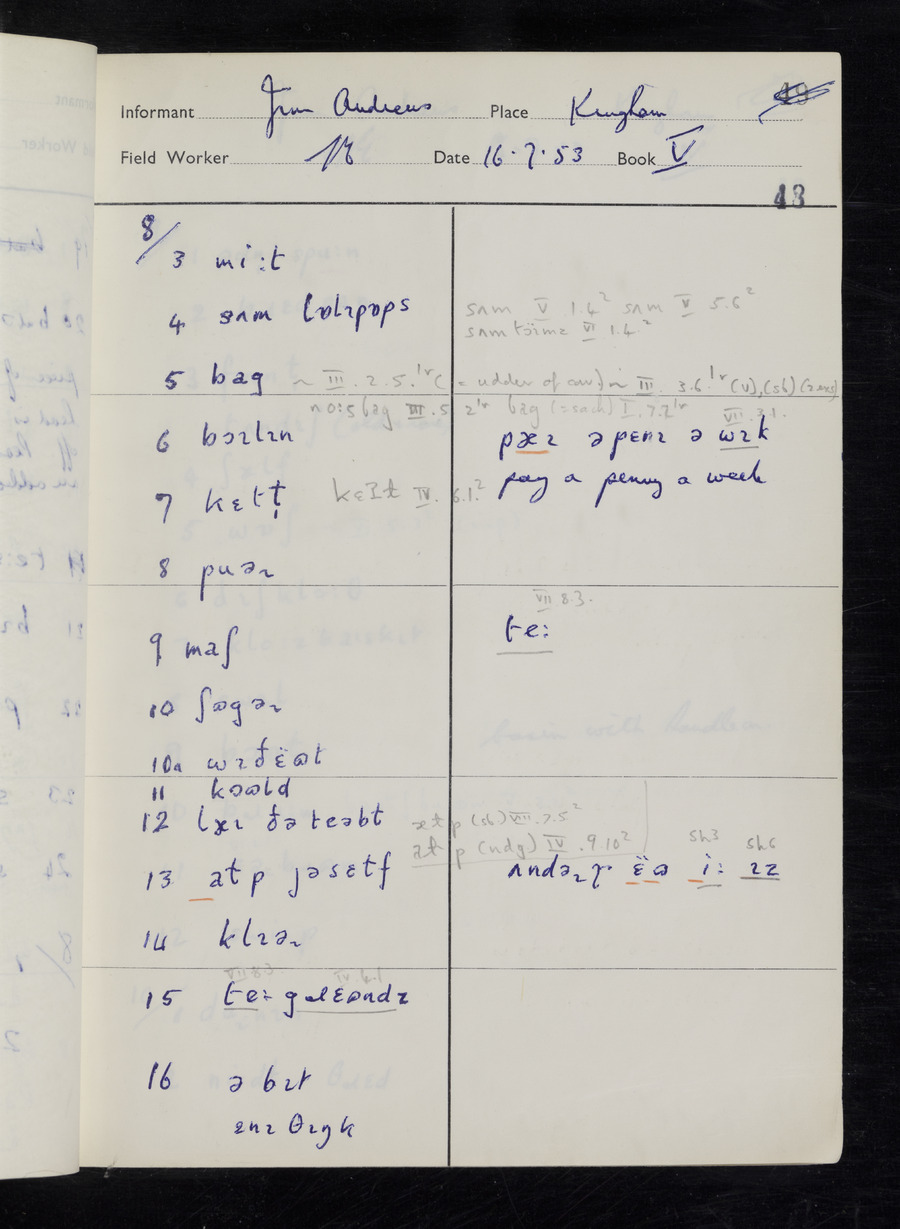 Informant Jim Andrews Place Kingham 49
Field Worker Date 16.7.53 Book V
43
8/
3 mi:t
4 sʌm lɒlɪpɒps
sʌm V 1.4² sʌm V 5.6²
sʌm tɔ̈imz VI 1.4²
5 bag ~ III.2.5.¹ʳ (= udder of cow) ~ III.3.6.¹ʳ (v),(sb)
no:sbag III.5 2¹ʳ bag (=sack) I.7.2¹ʳ VII.3.1.
6 bɔɪlɪn
pæɪ ə penɪ ə wɪk
7 kɛtt̩ kɛɪt IV.6.1.²
pay a penny a week
8 puəɹ
VII 8.3.
te:
9 maʃ
10 ʃɷgəɹ
10a wɪðɛ̈ɷt
11 kɔɷld
12 læɪ ðə teəbt
æt p (sb) VIII.7.5²
at p (ndg) IV.9.10²
sh3 sh6
13 at p jəsɛtf
ʌndəɹɤ ɛ̈ɷ i: ɪz
14 klɪəɹ
VII 8.3. IV.6.1
15 te: gɹɛɷndz
16 ə bɪt
ɛnɪ θɪŋk